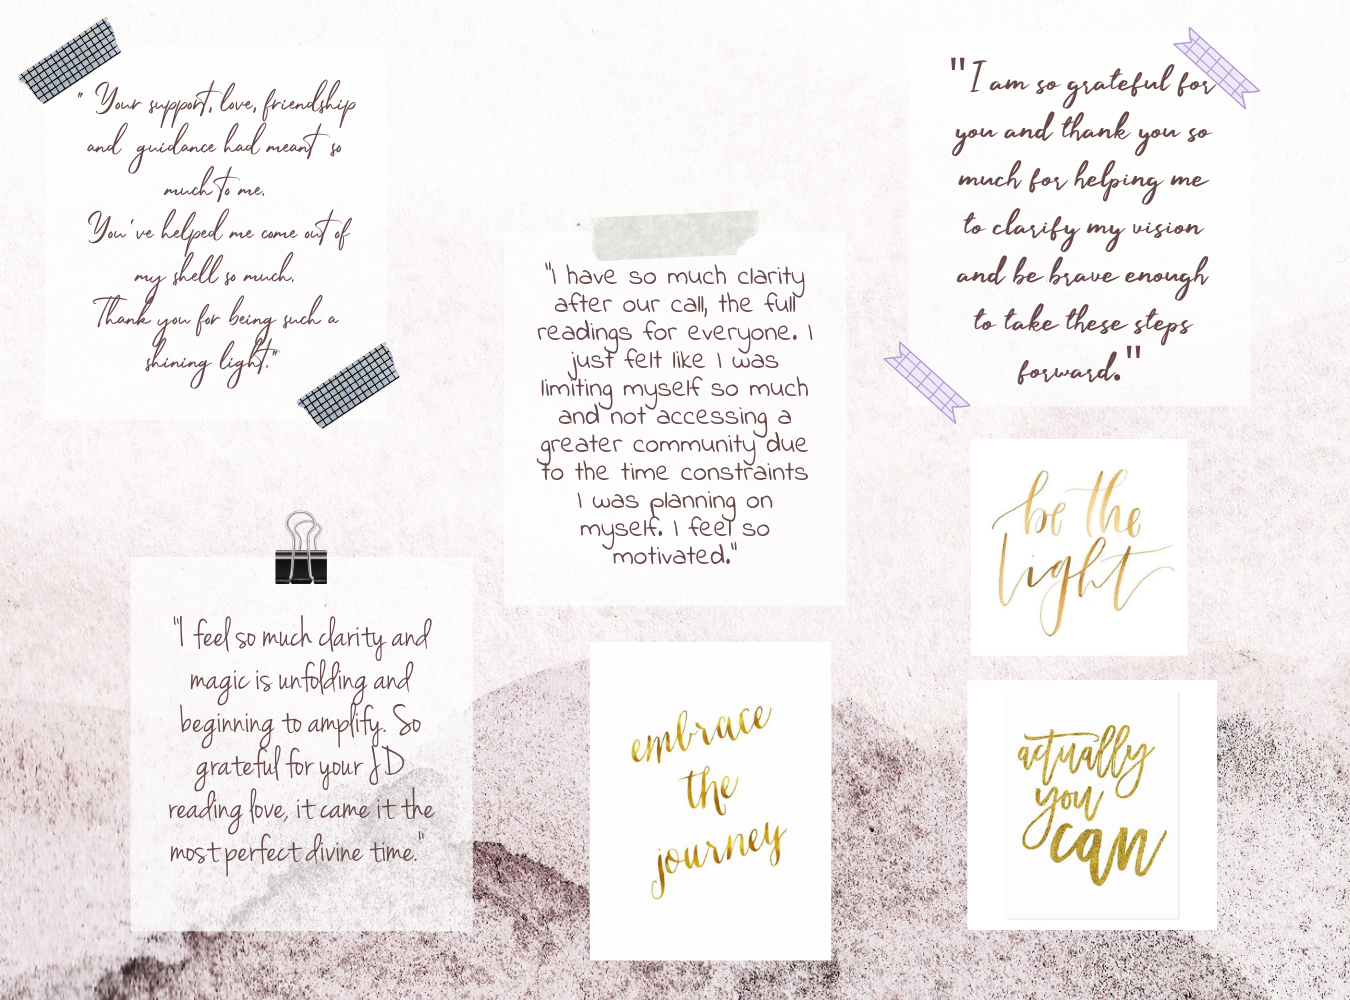 " Your support, love, friendship
and guidance had meant so
much to me.
You've helped me come out of
my shell so much.
Thank you for being such a
shining light."
"I have so much clarity
after our call, the full
readings for everyone. I
just felt like I was
limiting myself so much
and not accessing a
greater community due
to the time constraints
I was planning on
myself. I feel so
motivated."
"I am so grateful for
you and thank you so
much for helping me
to clarify my vision
and be brave enough
to take these steps
forward."
"I feel so much clarity and
magic is unfolding and
beginning to amplify. So
grateful for your JD
reading love, it came it the
most perfect divine time."
embrace
the
journey
be the
light
actually
you
can